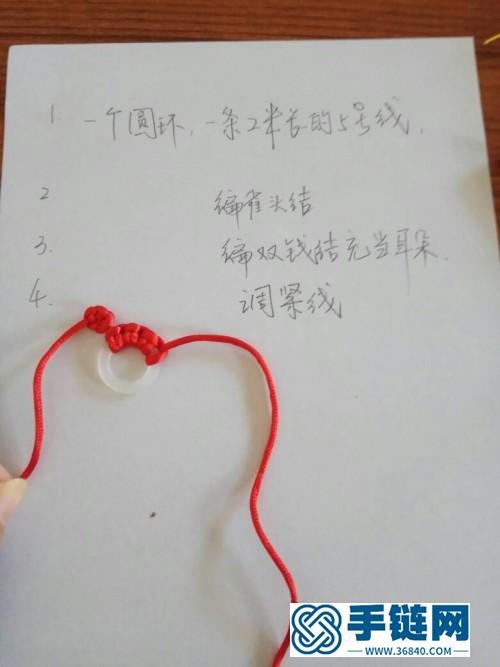 1. 一个圆环，一条2米长的5号线.
2 编雀头结
3. 编双钱结充当耳朵.
4. 调紧线
手链网
WWW.36840.COM